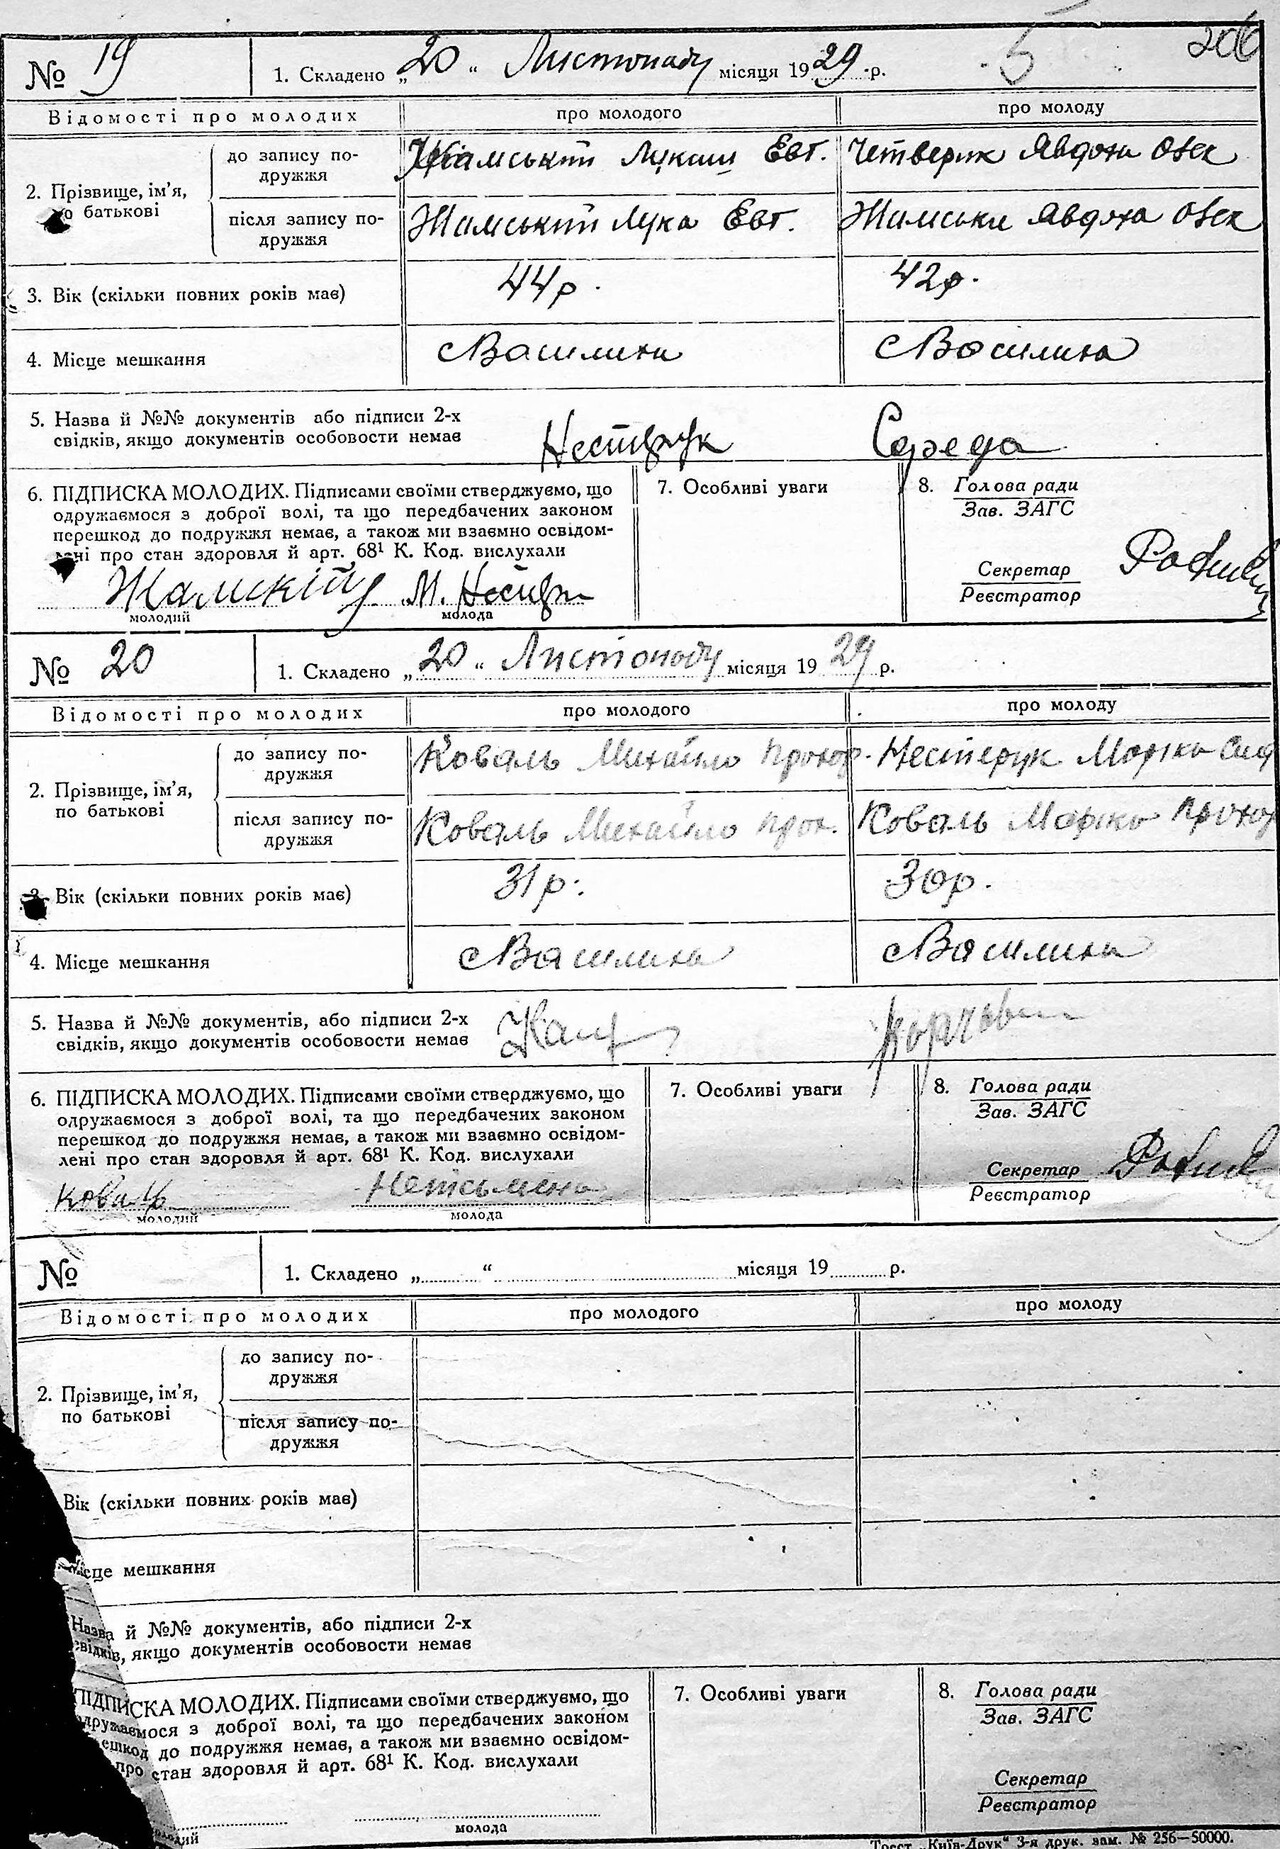 № 19 1. Складено „20“ Листопаду місяця 1929 р. 5 206
Відомості про молодих про молодого про молоду
2. Прізвище, ім'я, по батькові
до запису подружжя Жамський Лукаш Евг. Четверик Явдоха Овек
після запису подружжя Жамський Лука Евг. Жамська Явдоха Овек
3. Вік (скільки повних років має) 44 р. 42 р.
4. Місце мешкання с Василиха с Василиха
5. Назва й №№ документів або підписи 2-х
свідків, якщо документів особовости немає Нестерук Середа
6. ПІДПИСКА МОЛОДИХ. Підписами своїми стверджуємо, що 7. Особливі уваги 8. Голова ради
одружаємося з доброї волі, та що передбачених законом Зав. ЗАГС
перешкод до подружжя немає, а також ми взаємно освідом-
лені про стан здоровля й арт. 68¹ К. Код. вислухали Секретар
Реєстратор
молодий молода
№ 20 1. Складено „20“ Листопаду місяця 1929 р.
Відомості про молодих про молодого про молоду
2. Прізвище, ім'я, по батькові
до запису подружжя Коваль Михайло Прохор. Нестерук Марко Сид
після запису подружжя Коваль Михайло Прох. Коваль Марко Прохор
3. Вік (скільки повних років має) 31 р. 30 р.
4. Місце мешкання с Василиха с Василиха
5. Назва й №№ документів, або підписи 2-х
свідків, якщо документів особовости немає
6. ПІДПИСКА МОЛОДИХ. Підписами своїми стверджуємо, що 7. Особливі уваги 8. Голова ради
одружаємося з доброї волі, та що передбачених законом Зав. ЗАГС
перешкод до подружжя немає, а також ми взаємно освідом-
лені про стан здоровля й арт. 68¹ К. Код. вислухали Секретар
Коваль Неписьмена Реєстратор
молодий молода
№ 1. Складено „ “ місяця 19 р.
Відомості про молодих про молодого про молоду
2. Прізвище, ім'я, по батькові
до запису подружжя
після запису подружжя
Вік (скільки повних років має)
місце мешкання
Назва й №№ документів, або підписи 2-х
свідків, якщо документів особовости немає
ПІДПИСКА МОЛОДИХ. Підписами своїми стверджуємо, що 7. Особливі уваги 8. Голова ради
одружаємося з доброї волі, та що передбачених законом Зав. ЗАГС
перешкод до подружжя немає, а також ми взаємно освідом-
про стан здоровля й арт. 68¹ К. Код. вислухали Секретар
Реєстратор
молодий молода
Трест „Київ-Друк“ 3-я друк. зам. № 256—50000.